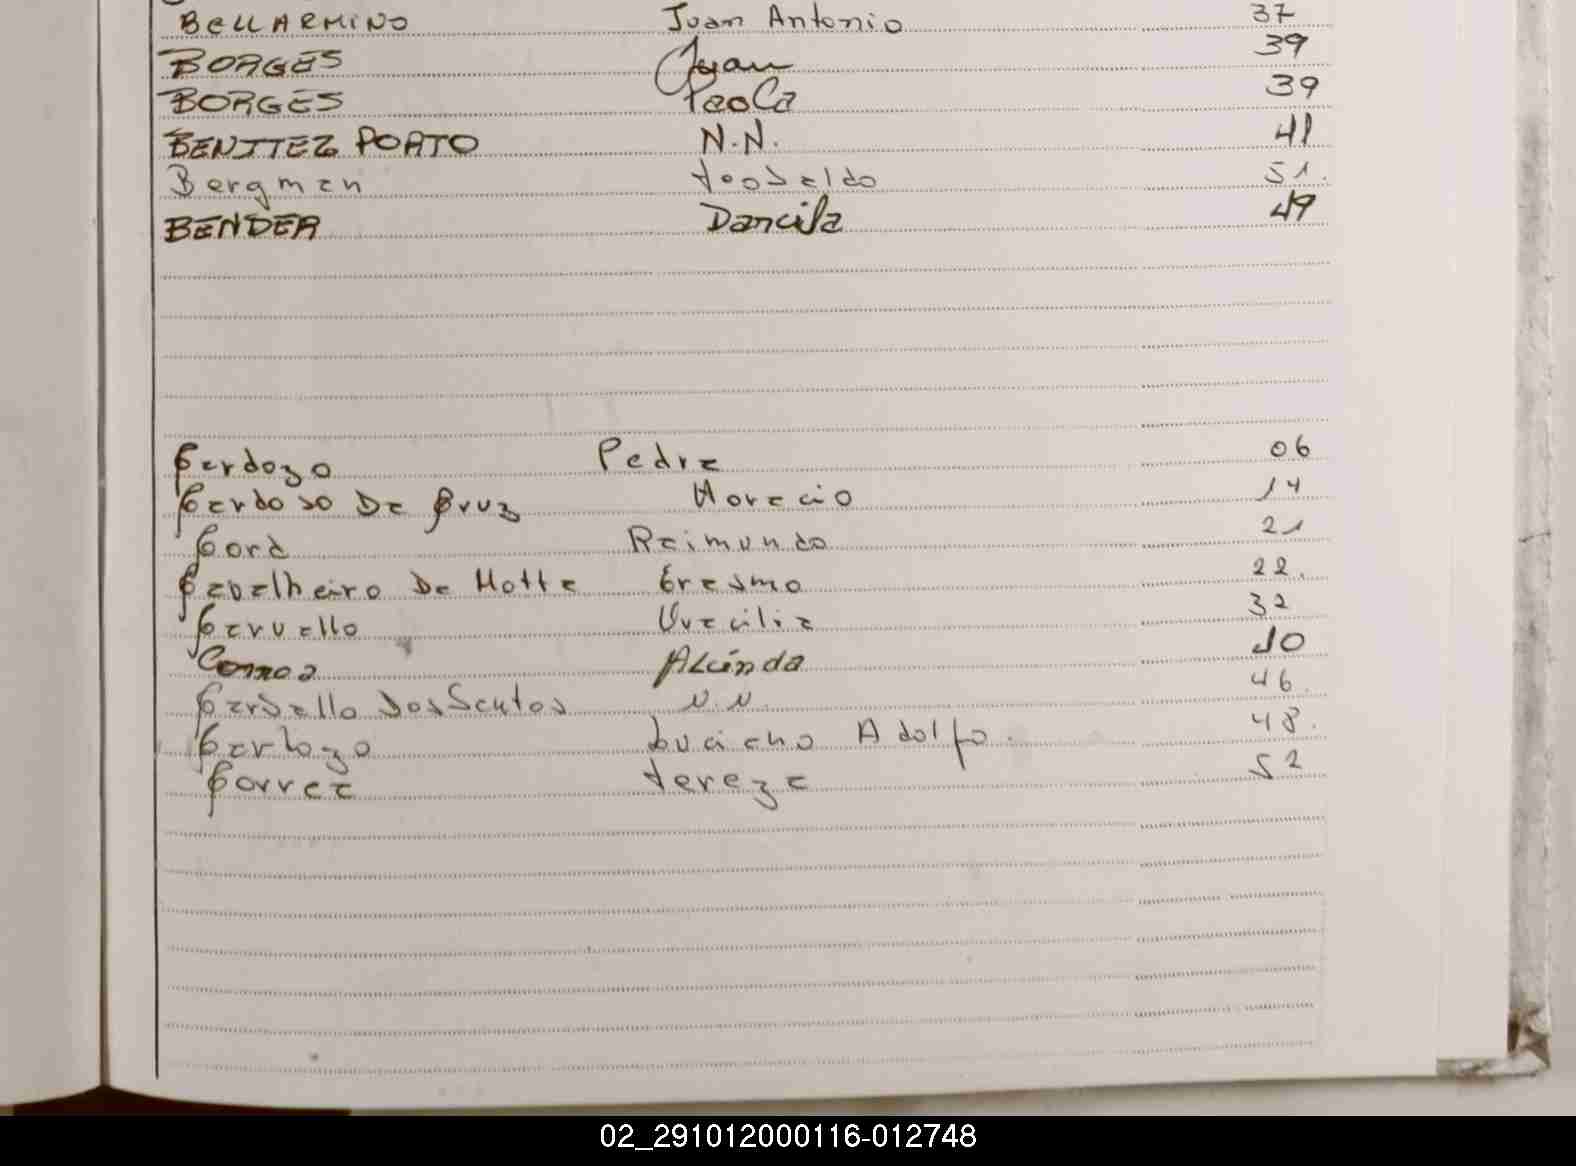 BELLARMINO Juan Antonio 37
BORGES Juan 39
BORGES Paola 39
BENITEZ PORTO N.N. 41
Bergman Teobaldo 51.
BENDER Darcila 49
Cardozo Pedra 06
Cardoso Da Cruz Horacio 14
Cora Raimundo 21
Cavalheiro Da Motta Erasmo 22.
Carvallo Uracilia 32
Correa Alcinda 40
Carballo Dos Santos N.N. 46.
Luciano Adolfo. 48.
Correa Tereza 52
02_291012000116-012748